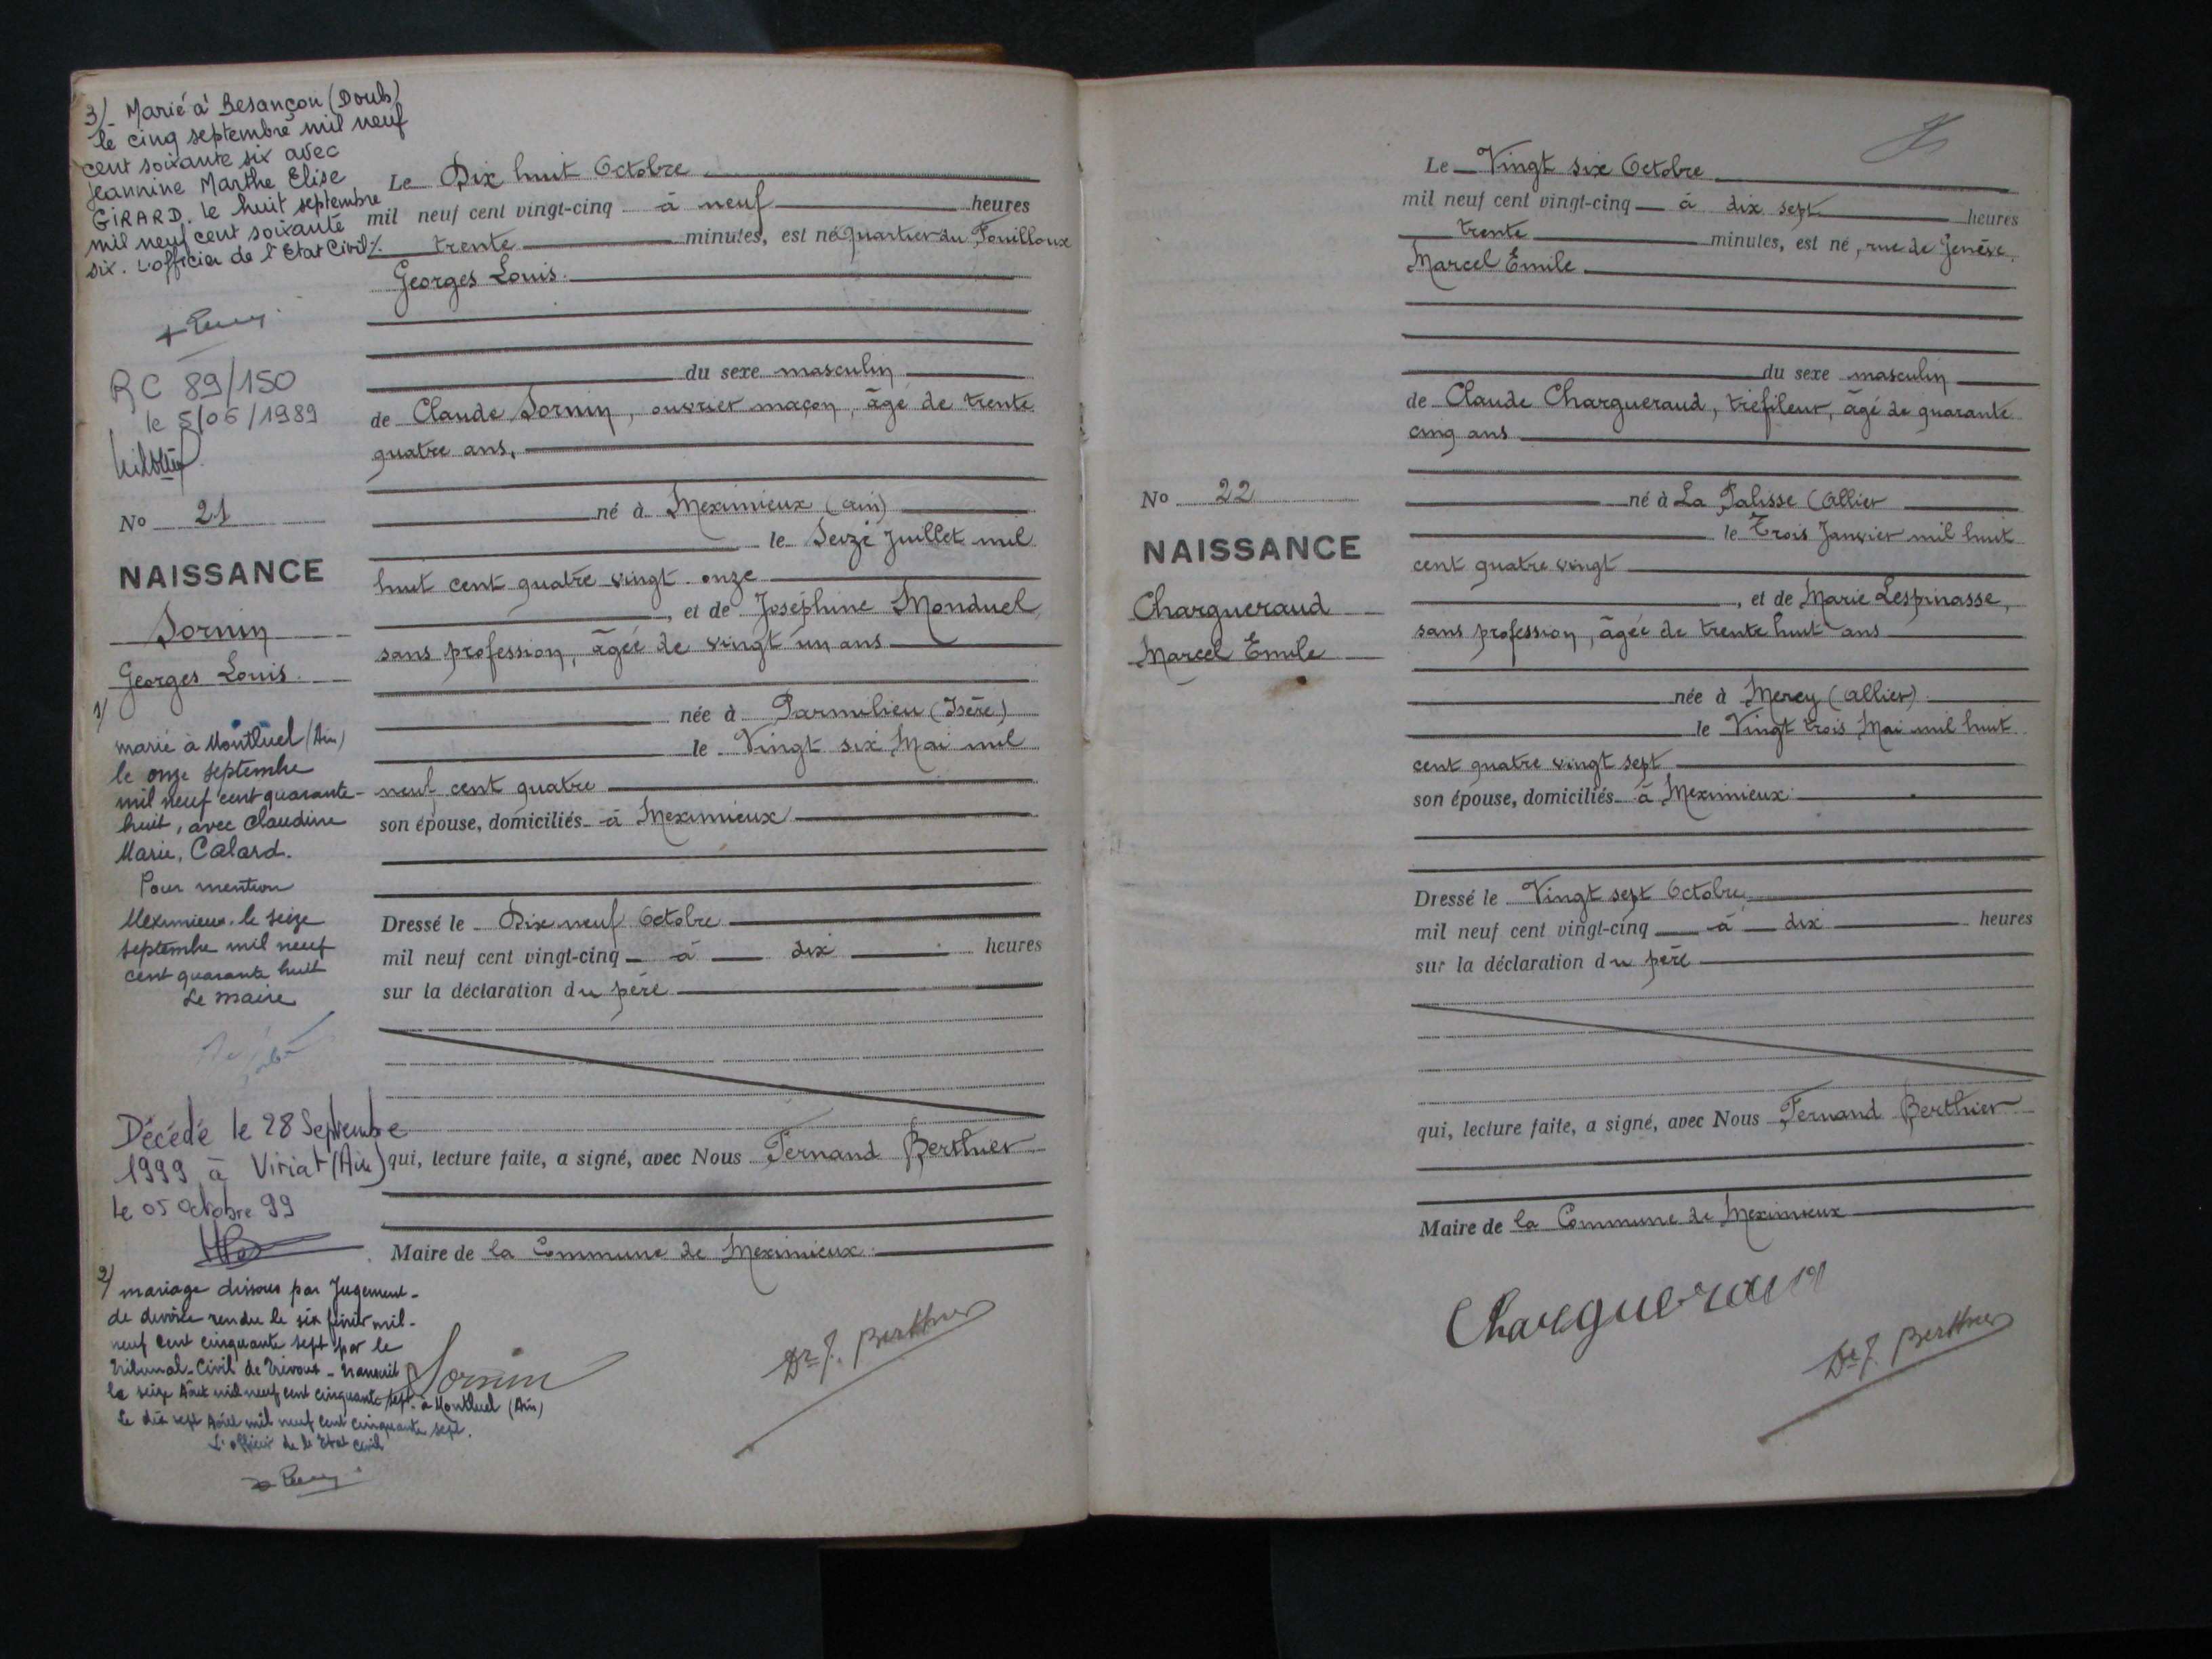 3/- Marié à Besançon (Doubs)
le cinq septembre mil neuf
cent soixante six avec
Jeannine Marthe Elise
GIRARD. le huit septembre
mil neuf cent soixante
six. L'officier de l'Etat Civil
RC 89/150
le 5/06/1989
No 21
NAISSANCE
Sornin
Georges Louis
1/
marié à Montluel (Ain)
le onze septembre
mil neuf cent quarante-
huit, avec Claudine
Marie, Calard.
Pour mention
Meximieux. le seize
septembre mil neuf
cent quarante huit
Le maire
Décédé le 28 Septembre
1999 à Viriat (Ain)
le 05 octobre 99
2/ mariage dissous par Jugement-
de divorce rendu le six février mil-
neuf cent cinquante sept par le
Tribunal-Civil de Trévoux - transcrit
le seize Août mil neuf cent cinquante sept. à Montluel (Ain)
Le dix sept Août mil neuf cent cinquante sept.
L'officier de l'Etat civil
Le Dix huit Octobre
mil neuf cent vingt-cinq à neuf heures
trente minutes, est né quartier du Fouilloux
Georges Louis.
du sexe masculin
de Claude Sornin, ouvrier maçon, âgé de trente
quatre ans,
né à Meximieux (ain)
le Seize Juillet mil
huit cent quatre vingt onze
, et de Joséphine Monduel,
sans profession, âgée de vingt un ans
née à Parmilieu (Isère)
le Vingt six Mai mil
neuf cent quatre
son épouse, domiciliés à Meximieux
Dressé le Dix neuf Octobre
mil neuf cent vingt-cinq à dix heures
sur la déclaration du père
qui, lecture faite, a signé, avec Nous Fernand Berthier
Maire de la Commune de Meximieux
Sornin
Dr F. Berthier
No 22
NAISSANCE
Chargueraud
Marcel Emile
Le Vingt six Octobre
mil neuf cent vingt-cinq à dix sept heures
trente minutes, est né, rue de Genève,
Marcel Emile
du sexe masculin
de Claude Chargueraud, tréfileur, âgé de quarante
cinq ans
né à La Palisse (Allier
le Trois Janvier mil huit
cent quatre vingt
, et de Marie Lespinasse,
sans profession, âgée de trente huit ans
née à Mercy (Allier)
le Vingt trois Mai mil huit
cent quatre vingt sept
son épouse, domiciliés à Meximieux
Dressé le Vingt sept Octobre
mil neuf cent vingt-cinq à dix heures
sur la déclaration du père
qui, lecture faite, a signé, avec Nous Fernand Berthier
Maire de la Commune de Meximieux
Chargueraud
Dr F. Berthier